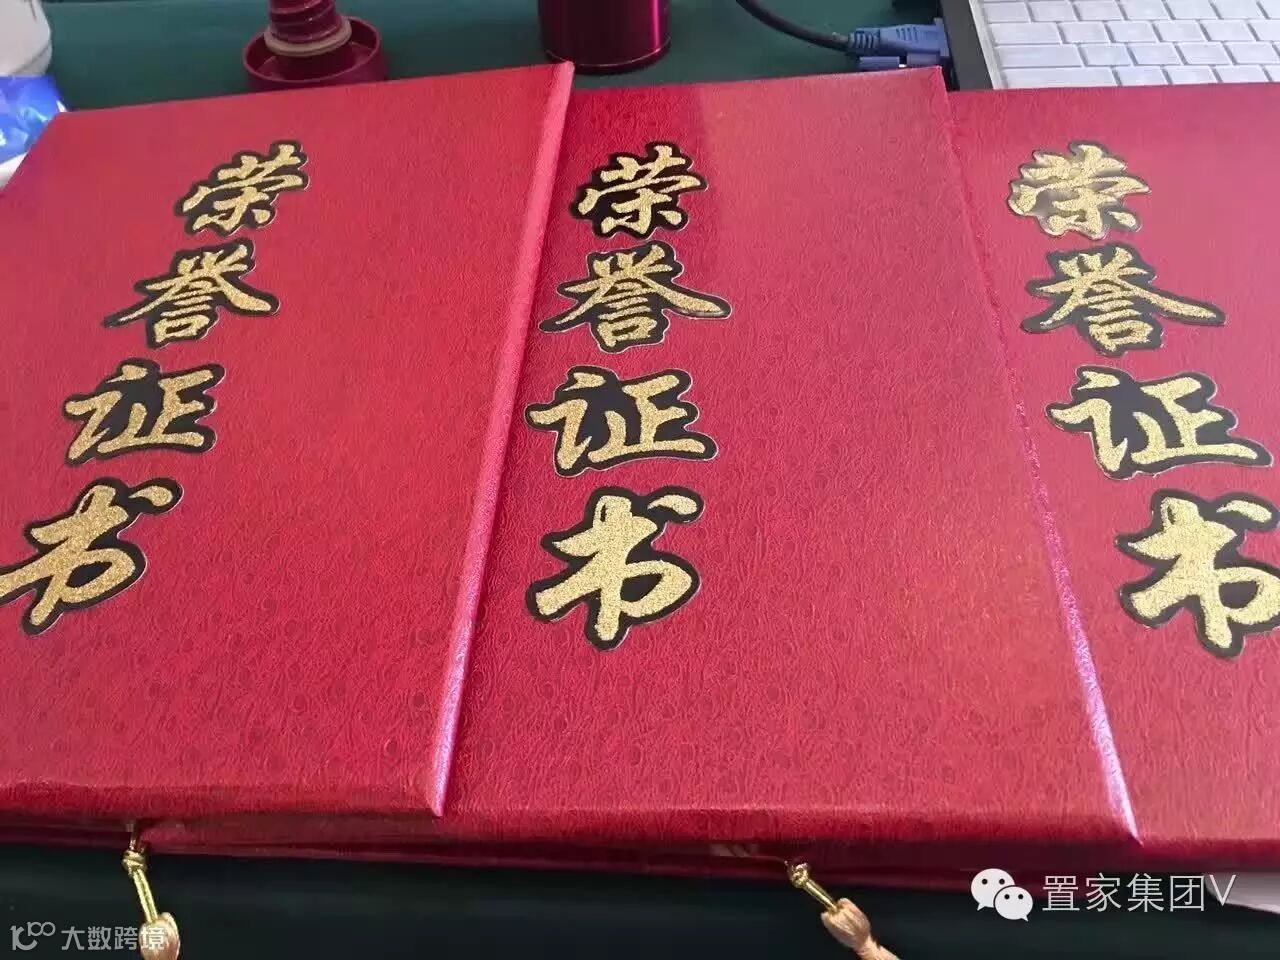 荣誉证书
荣誉证书
荣誉证书
置家集团V
大数跨境